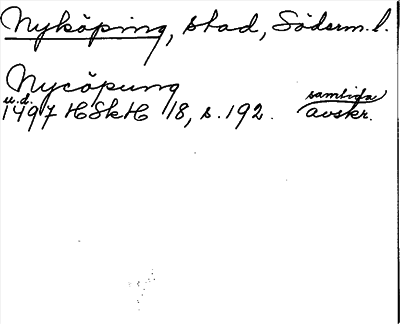 Nyköping, stad, Söderm.l.
Nycöpung
u.d. samtida
1497 HSkH 18, s. 192. avskr.